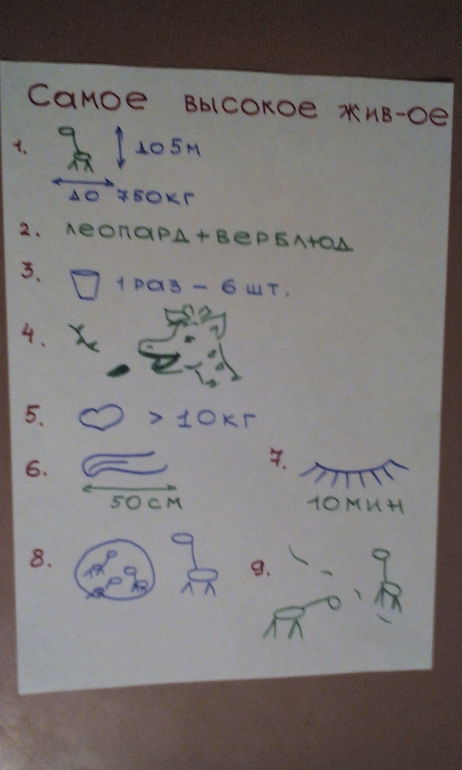 Самое высокое жив-ое
1. до 5м
до 750кг
2. леопард + верблюд
3. 1 раз - 6 шт.
4.
5. > 10кг
6. 50см
7. 10мин
8.
9.